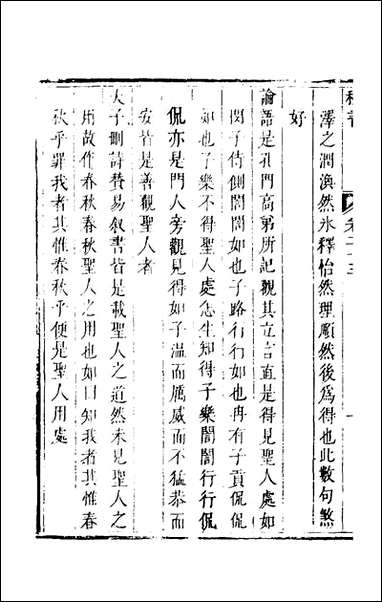 澤之潤渙然氷釋怡然理順然後為得也此數句煞
好
論語是孔門高第所記觀其立言直是得見聖人處如
閔子侍側誾誾如也子路行行如也冉有子貢侃侃
如也子樂不得聖人處怎生知得子樂誾誾行行侃
侃亦是門人旁觀見得如子溫而厲威而不猛恭而
安皆是善觀聖人者
夫子刪詩贊易叙書皆是載聖人之道然未見聖人之
用故作春秋春秋聖人之用也如曰知我者其惟春
秋乎罪我者其惟春秋乎便是聖人用處